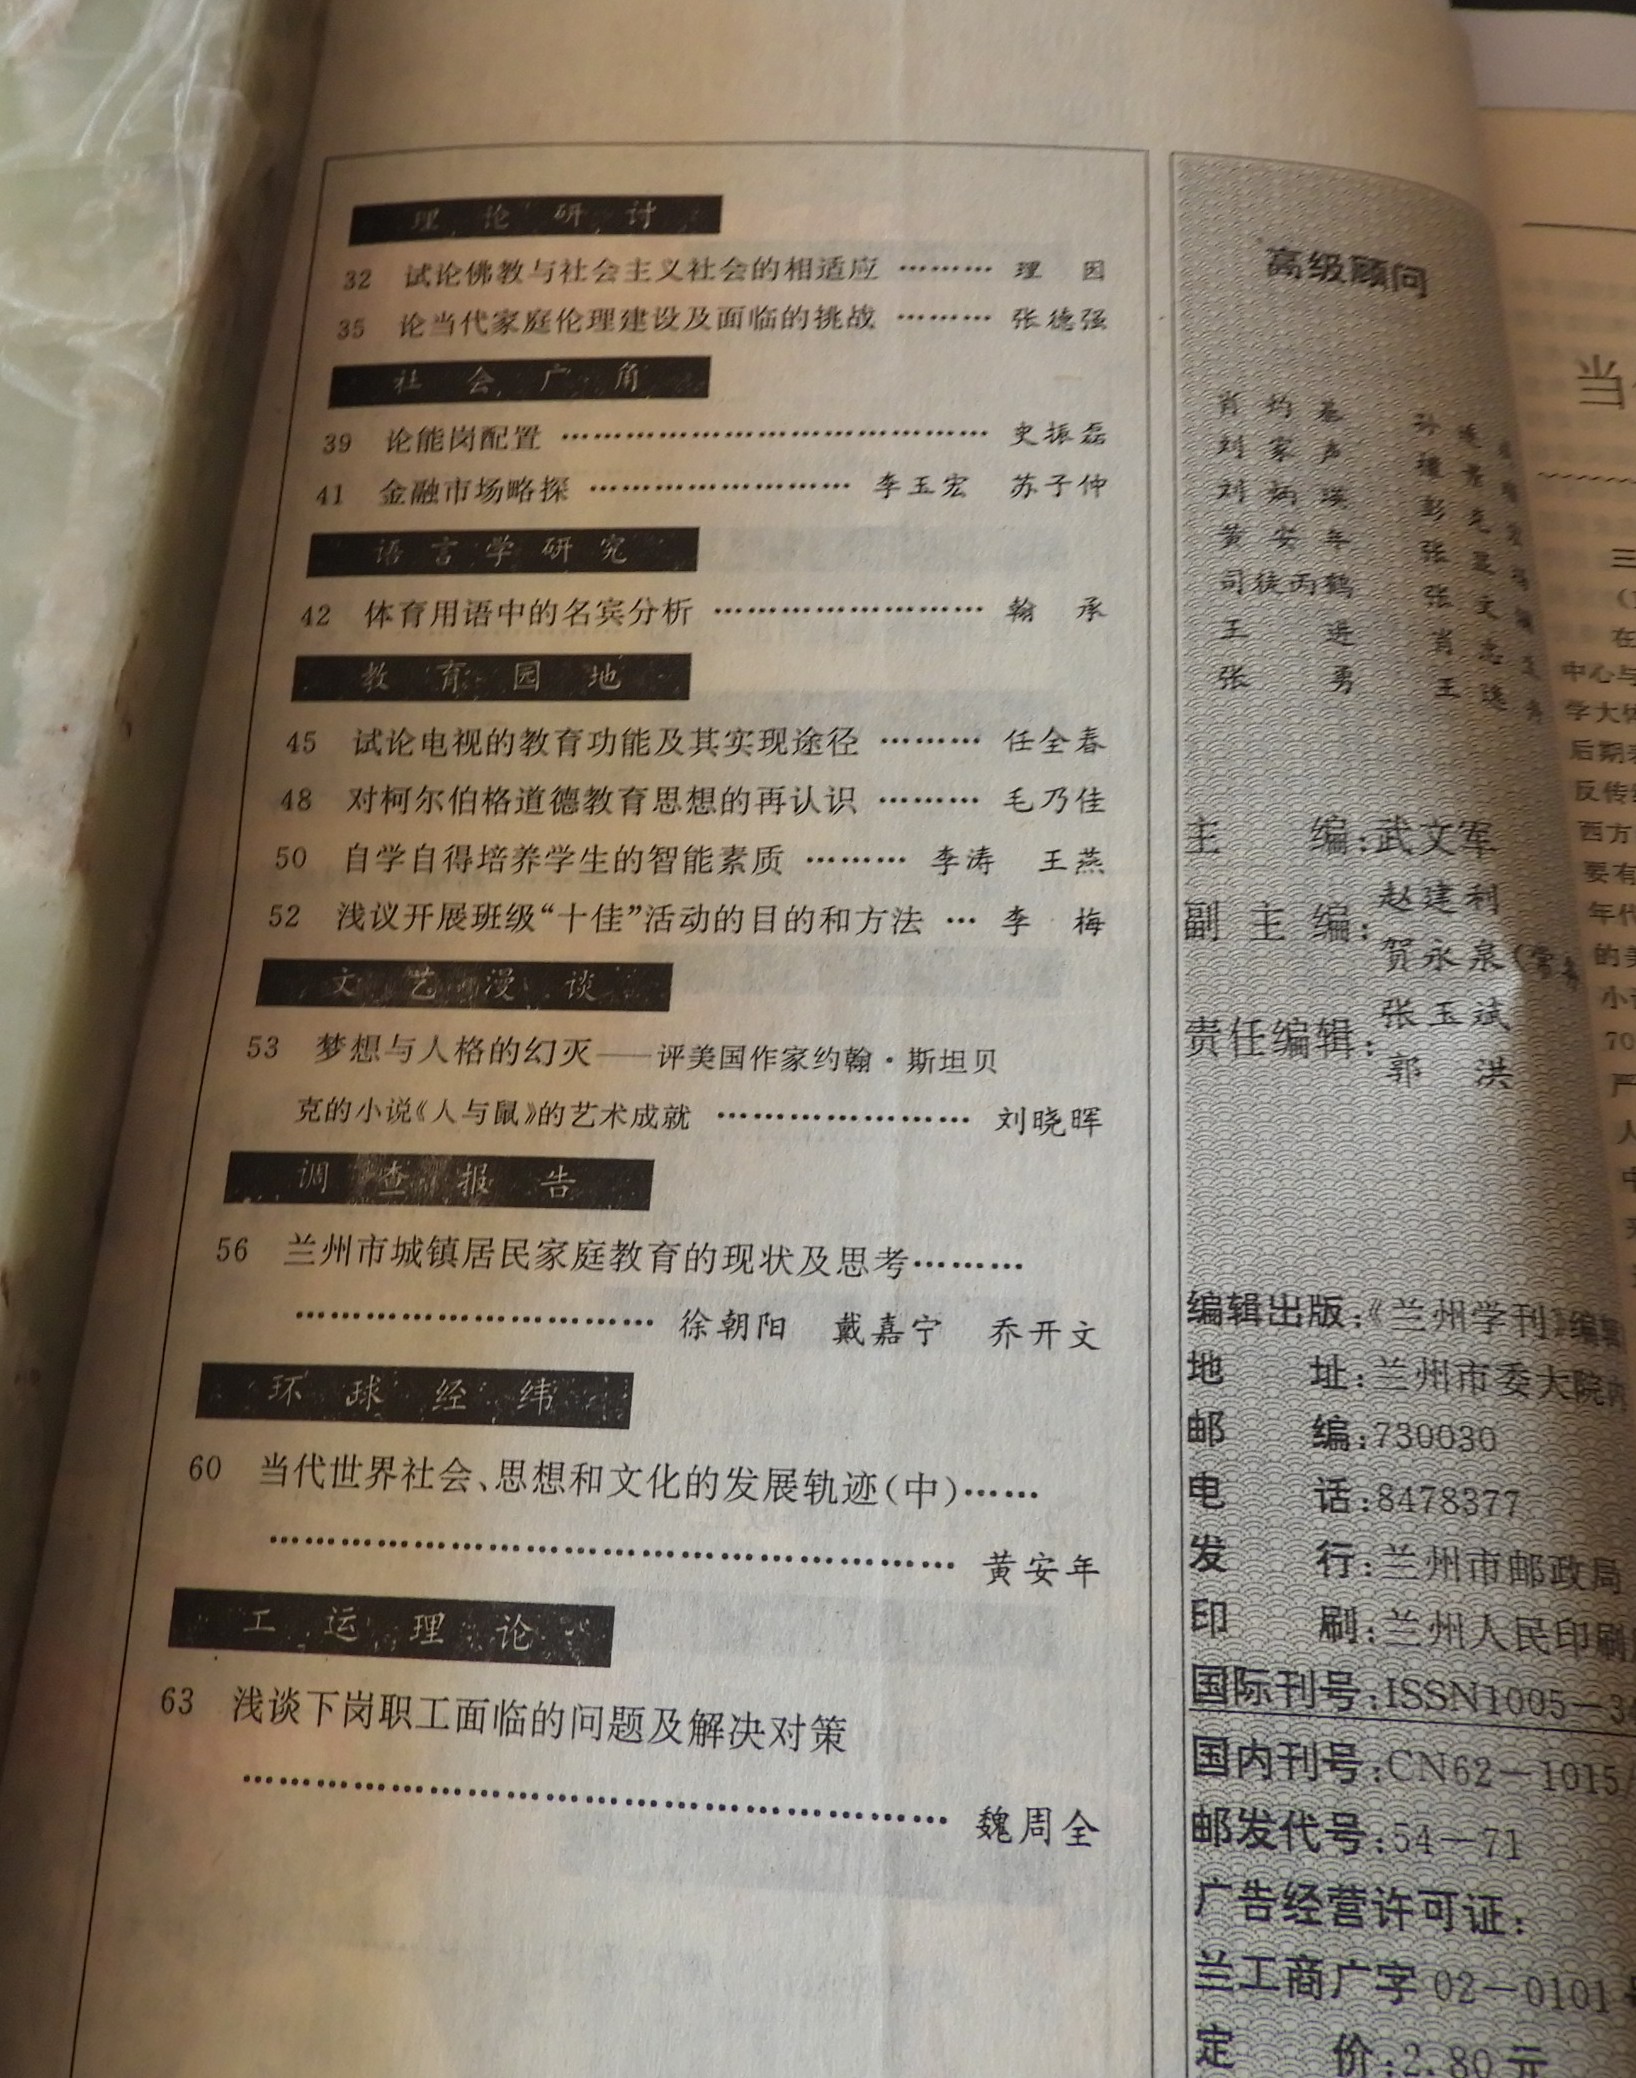 理论研讨
32 试论佛教与社会主义社会的相适应 ……… 理 因
35 论当代家庭伦理建设及面临的挑战 ……… 张德强
社会广角
39 论能岗配置 ………………………………… 史振磊
41 金融市场略探 …………………… 李玉宏 苏子仲
语言学研究
42 体育用语中的名宾分析 …………………… 翰 承
教育园地
45 试论电视的教育功能及其实现途径 ……… 任全春
48 对柯尔伯格道德教育思想的再认识 ……… 毛乃佳
50 自学自得培养学生的智能素质 ……… 李涛 王燕
52 浅议开展班级“十佳”活动的目的和方法 … 李 梅
文艺漫谈
53 梦想与人格的幻灭——评美国作家约翰·斯坦贝
克的小说《人与鼠》的艺术成就 …………………… 刘晓晖
调查报告
56 兰州市城镇居民家庭教育的现状及思考………
…………………………… 徐朝阳 戴嘉宁 乔开文
环球经纬
60 当代世界社会、思想和文化的发展轨迹(中)……
……………………………………………………… 黄安年
工运理论
63 浅谈下岗职工面临的问题及解决对策
……………………………………………………… 魏周全
高级顾问
肖灼基 孙
刘家声
刘炳瑛 彭
黄安年 张
司徒丙鹤 张文
王进 肖志
张勇 王
主编:武文军
副主编:赵建利
贺永泉(常务
责任编辑:张玉斌
郭洪
编辑出版:《兰州学刊》编辑
地址:兰州市委大院内
邮编:730030
电话:8478377
发行:兰州市邮政局
印刷:兰州人民印刷
国际刊号:ISSN1005-34
国内刊号:CN62-1015/
邮发代号:54-71
广告经营许可证:
兰工商广字 02-0101
定价:2.80 元
当
三
在
中心与
学大体
后期
反传
西方
要有
年代
的美
小说
70
严
人
中